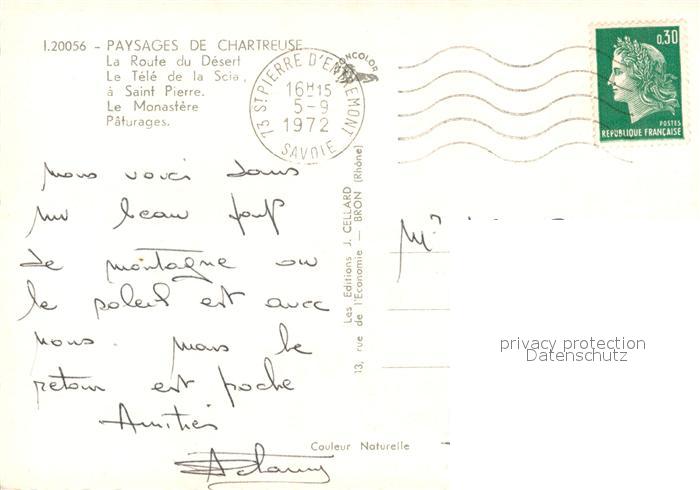 I.20056 - PAYSAGES DE CHARTREUSE
La Route du Désert
Le Télé de la Scia,
à Saint Pierre.
Le Monastère
Pâturages.
73 ST PIERRE D'ENTREMONT
16H15
5-9
1972
SAVOIE
0,30
POSTES
REPUBLIQUE FRANÇAISE
nous voici dans
un beau
de montagne ou
le soleil est avec
nous. mais le
retour est proche
Amitiés
Les Editions J. CELLARD
13, rue de l'Economie — BRON (Rhône)
Couleur Naturelle
privacy protection
Datenschutz